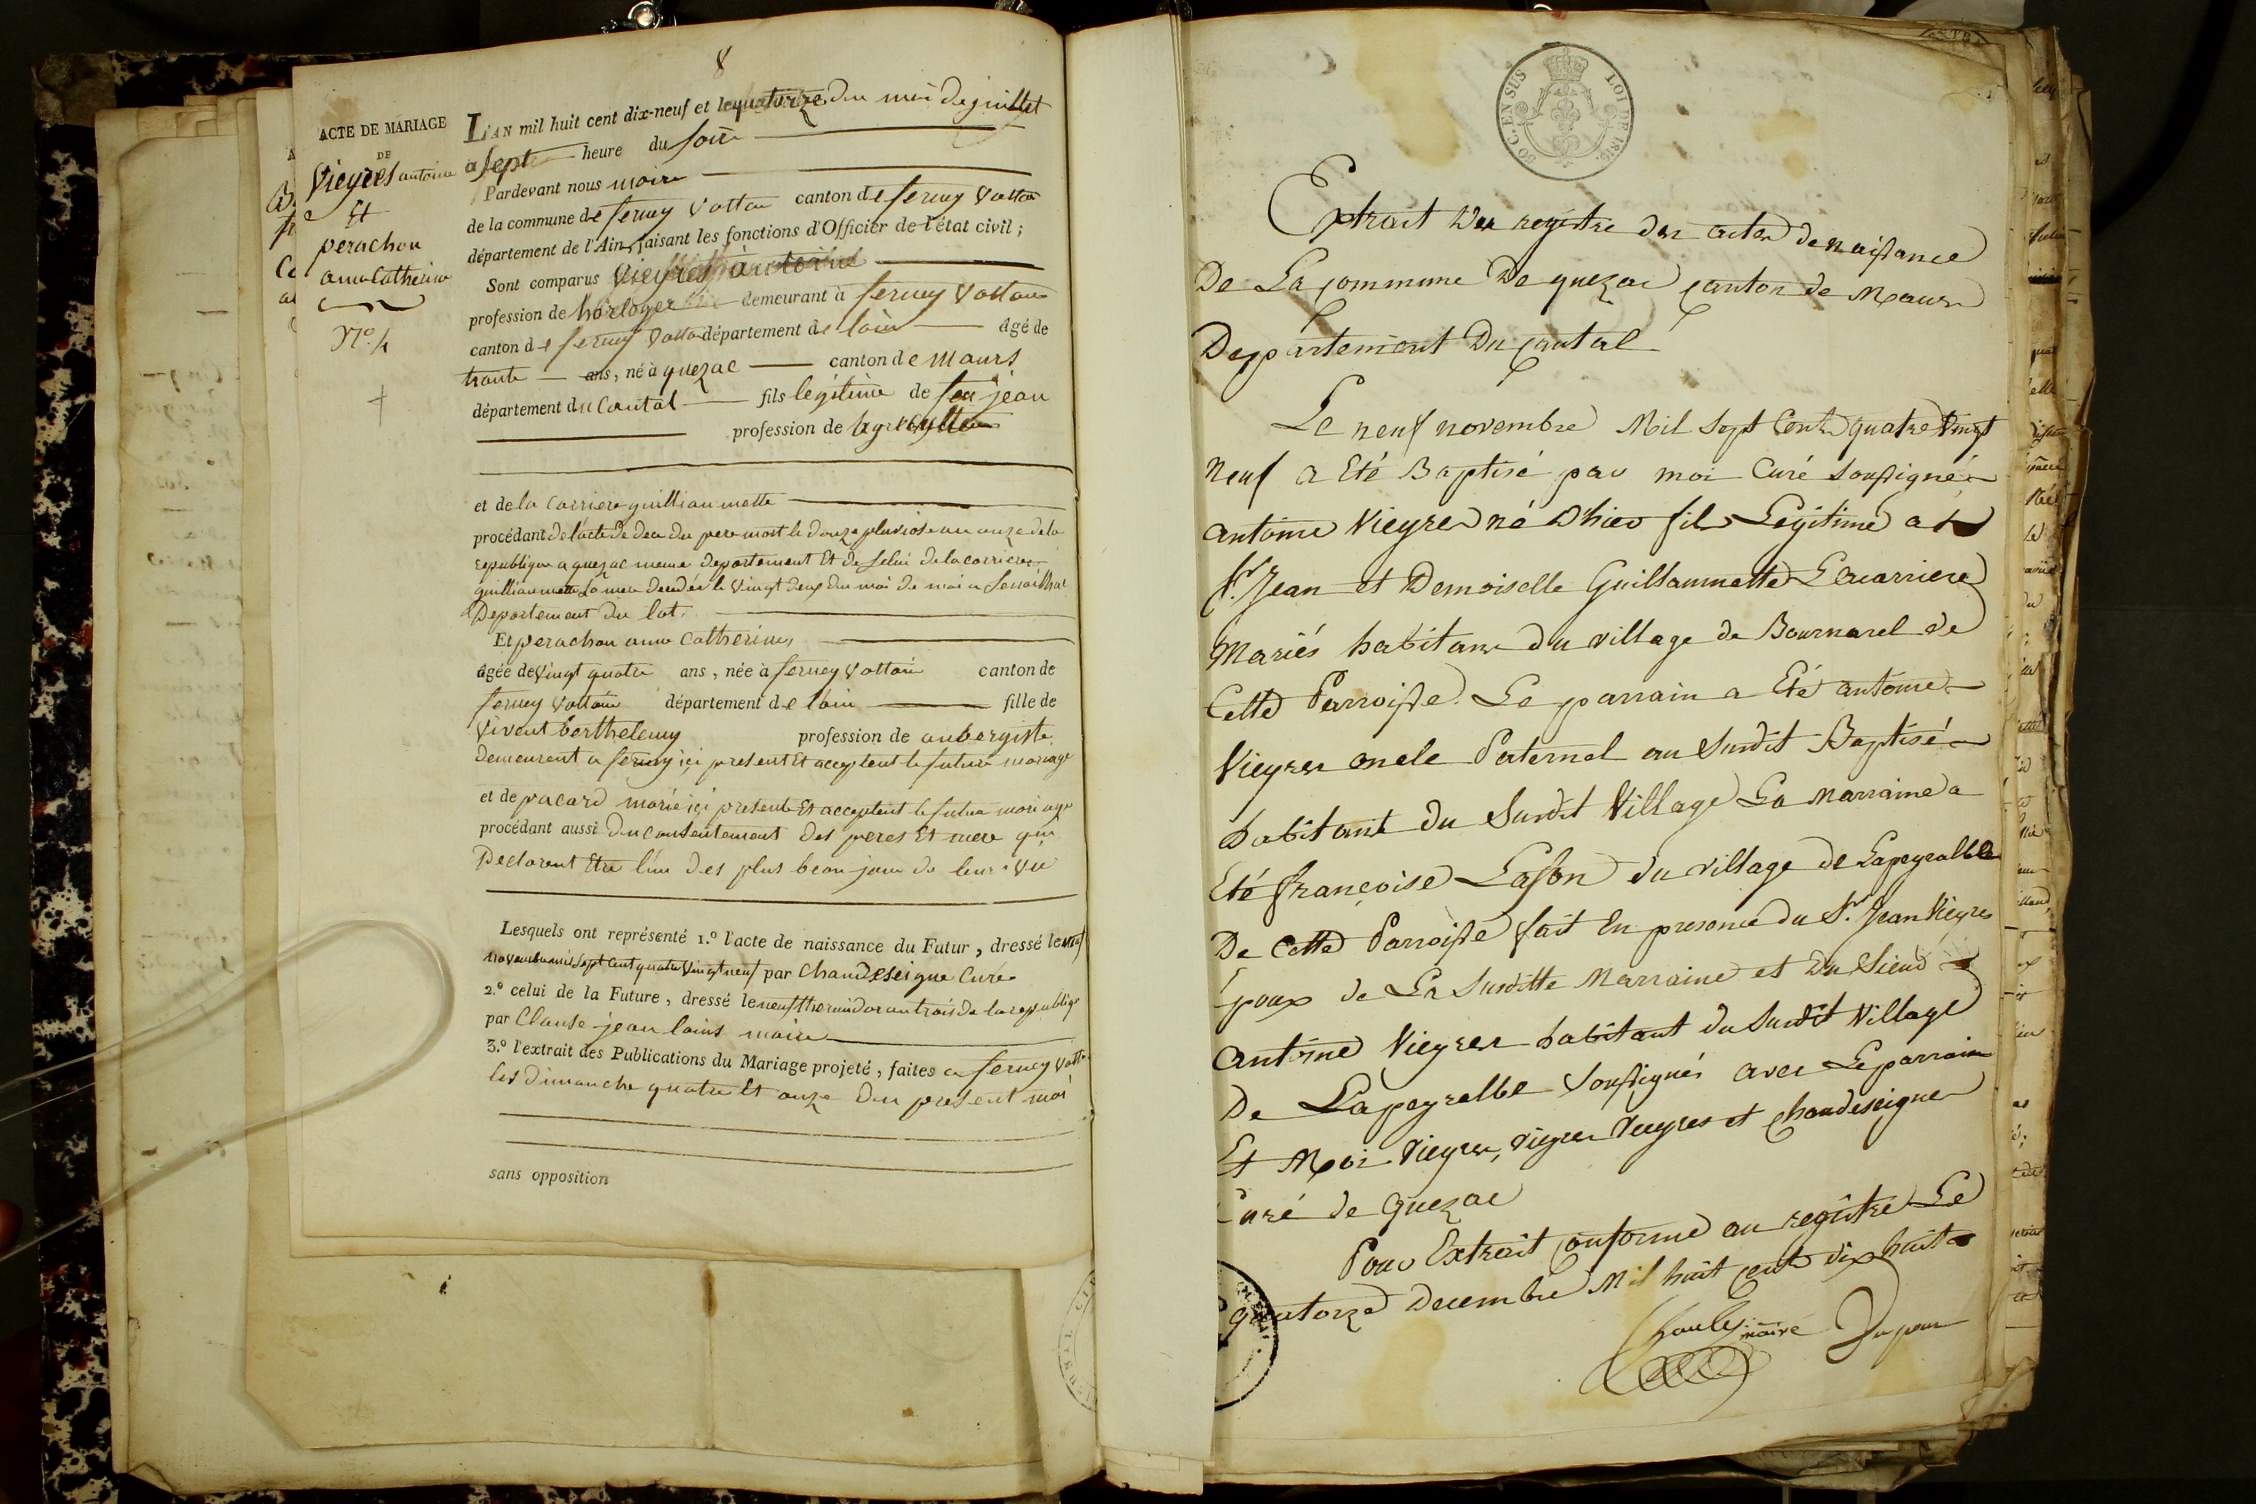 8
ACTE DE MARIAGE
DE
Vieyres antoine
Et
perachon
anne Catherine
N.º 4
L'AN mil huit cent dix-neuf et le quatorze du moi de juillet
à Sept heure du soir
Pardevant nous maire
de la commune de ferney Voltair canton de ferney Voltair
département de l'Ain, faisant les fonctions d'Officier de l'état civil;
Sont comparus Vieyres antoine
profession de horloger demeurant à ferney Voltair
canton de ferney Voltair département de lain âgé de
trante ans, né à quezac canton de maurs
département du Cantal fils légitime de feu jean
profession de agriculteur
et de la Carriere guilliaumette
procédant de l'acte de deces du pere mort le douze pluviose an onze de la
republique a quezac meme departement Et de Celui de la carriere
guilliaumette La mere decedée le Vingt deux du moi de mai a
Departement du lot.
Et perachon anne Catherine,
âgée de Vingt quatre ans, née à ferney Voltair canton de
ferney Voltair département de lain fille de
Vivent berthelemy profession de aubergiste
demeurent a ferney içi present Et acceptent le future mariage
et de pacard marie içi presente Et acceptent le future mariage
procédant aussi du consentement des peres Et mere qui
Declarent Etre l'un des plus beau jour de leur vie
Lesquels ont représenté 1.º l'acte de naissance du Futur, dressé le neuf
novembre mil Sept Cent quatre Vingt neuf par Chandeseigne Curé
2.º celui de la Future, dressé le neuf thermidor an trois de la republiqe
par Clause jean louis maire
3.º l'extrait des Publications du Mariage projeté, faites a ferney Voltr
les dimanche quatre Et onze du present moi
sans opposition
50 C. EN SUS
LOI DE 1816.
Extrait des registre des actes de naissance
De La commune De quezac canton de Maurs
Departement Du cantal
Le neuf novembre Mil Sept Cent quatre Vingt
Neuf a Eté Baptisé par moi Curé soussigné
antoine Vieyres né D'hier fils Legitime a
Sr. Jean et Demoiselle Guillaumette Lacarriere
Mariés habitans du village de Bournarel de
Cette Parroisse. Le parrain a Eté antoine
Vieyres oncle Paternel au Susdit Baptisé
habitant du Susdit Village La Marraine a
Eté françoise Lafon du village de Lapeyralbe
De Cette Parroisse fait En presence du Sr. Jean Vieyres
Epoux de La Susditte Marraine et du Sieur
antoine Vieyres habitant du Susdit Village
De Lapeyralbe Soussignés avec Le parrain
Et Moi Vieyres, Vieyres Vieyres et Chandeseigne
Curé de Quezac
Pour Extrait conforme au registre Le
quatorze Decembre Mil huit cent dix huit
maire